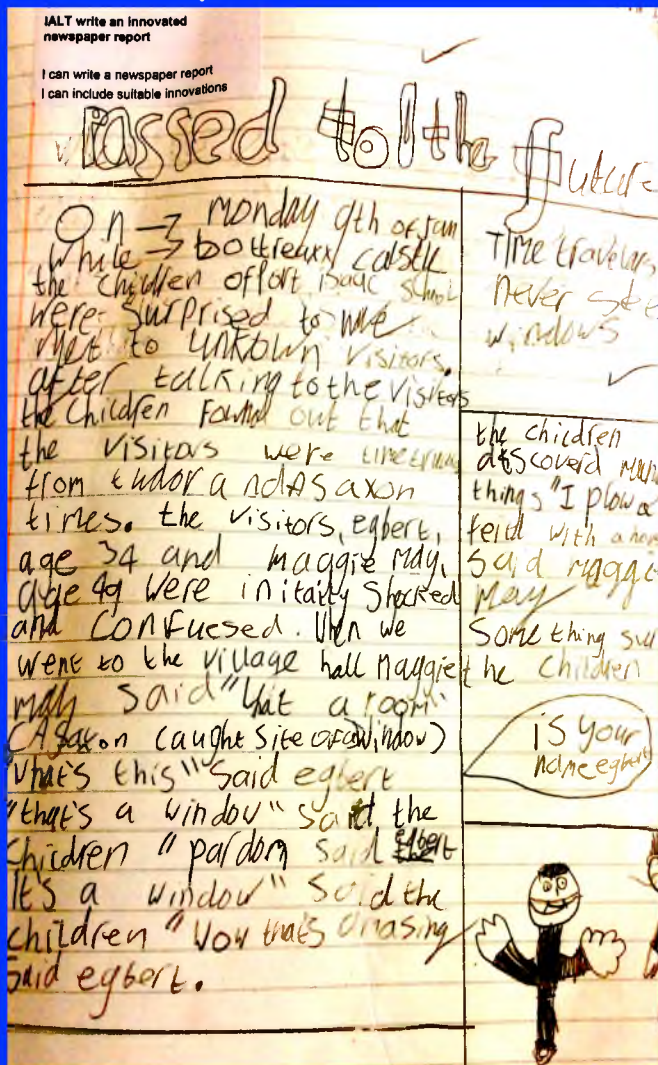 IALT write an innovated
newspaper report
I can write a newspaper report
I can include suitable innovations
Passed to the future
On → monday 9th of jan
while → bottreaxx castle
the children of port isaac school
were surprised to
met to unknown visitors.
after talking to the visitors
the children found out that
the visitors were time
from tudor and A Saxon
times. the visitors, egbert,
age 34 and maggie may,
age 49 were initaity shocked
and confuesed. When we
went to the village hall maggie
may said "What a room"
(A Saxon caught site of a window)
What's this" said egbert
"that's a window" said the
children "pardom said egbert
It's a window" said the
children "Wow that's amasing
said egbert.
Time travelars
never see
windows
the children
discoverd
things "I plow a
feild with a
said maggie
may
Some thing
the children
is your
name egbert